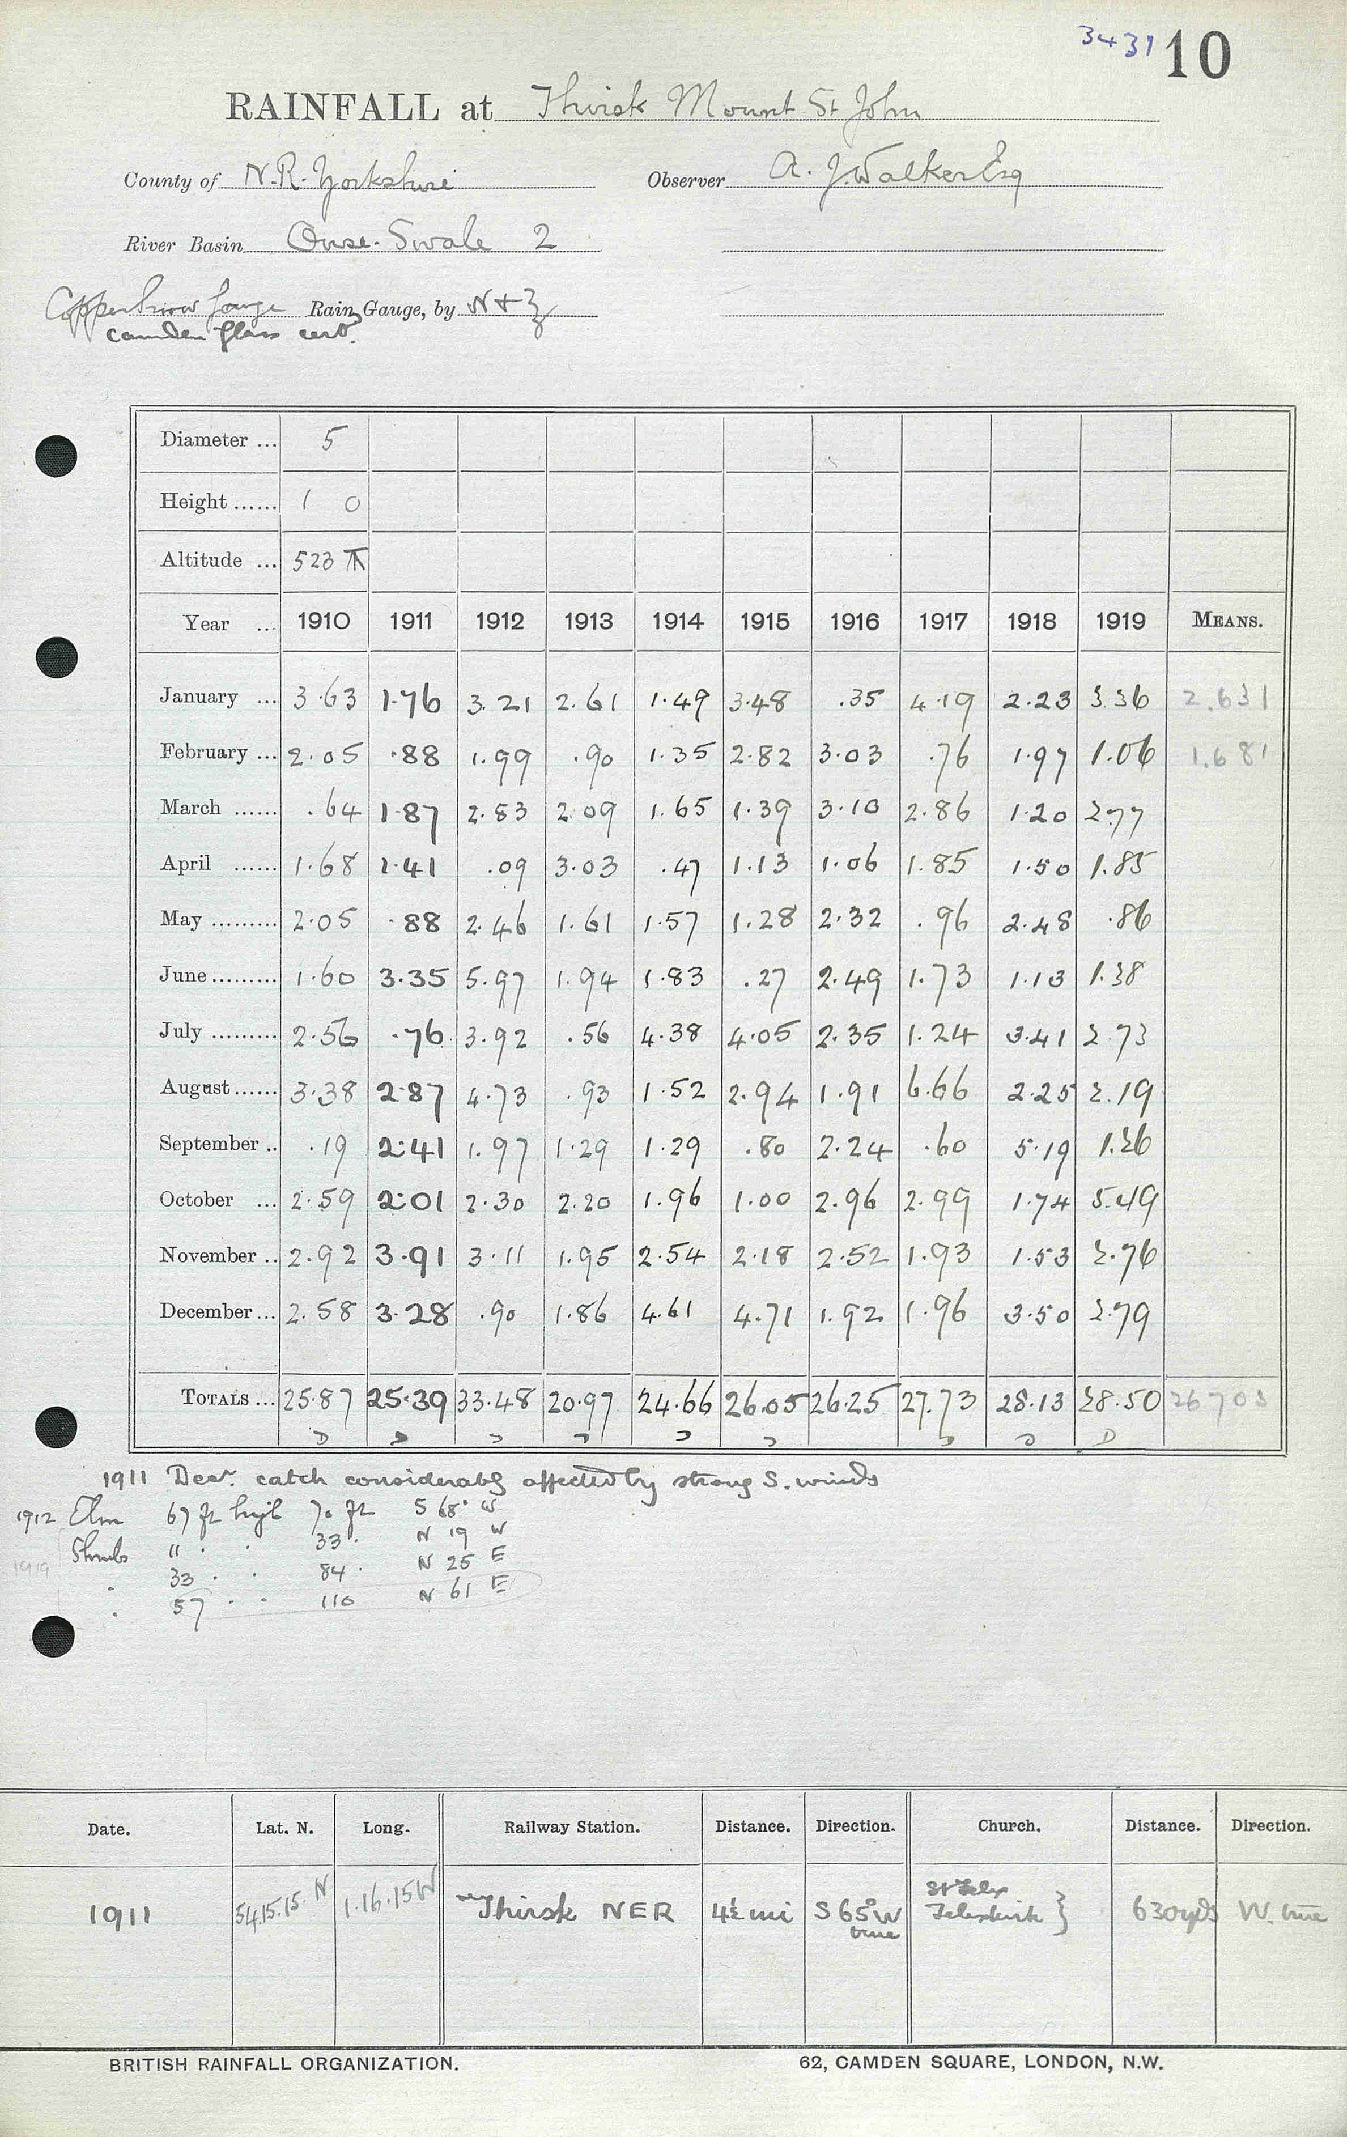 3431 10
RAINFALL at Thirsk Mount St John
County of N.R. Yorkshire Observer A. J. Walker Esq
River Basin Ouse-Swale 2
Copper Snow Gauge Rain Gauge, by N + Z
Camden glass cert.
Diameter ... 5
Height ...... 1 0
Altitude ... 523
Year ... 1910 1911 1912 1913 1914 1915 1916 1917 1918 1919 MEANS.
January ... 3.63 1.76 3.21 2.61 1.49 3.48 .35 4.19 2.23 3.36 2.631
February ... 2.05 .88 1.99 .90 1.35 2.82 3.03 .76 1.97 1.06 1.681
March ...... .64 1.87 2.83 2.09 1.65 1.39 3.10 2.86 1.20 2.77
April ...... 1.68 1.41 .09 3.03 .47 1.13 1.06 1.85 1.50 1.85
May ......... 2.05 .88 2.46 1.61 1.57 1.28 2.32 .96 2.48 .86
June ......... 1.60 3.35 5.97 1.94 1.83 .27 2.49 1.73 1.13 1.38
July ......... 2.56 .76 3.92 .56 4.38 4.05 2.35 1.24 3.41 2.73
August ...... 3.38 2.87 4.73 .93 1.52 2.94 1.91 6.66 2.25 2.19
September .. .19 2.41 1.97 1.29 1.29 .80 2.24 .60 5.19 1.26
October ... 2.59 2.01 2.30 2.20 1.96 1.00 2.96 2.99 1.74 5.49
November .. 2.92 3.91 3.11 1.95 2.54 2.18 2.52 1.93 1.53 2.76
December ... 2.58 3.28 .90 1.86 4.61 4.71 1.92 1.96 3.50 2.79
TOTALS ... 25.87 25.39 33.48 20.97 24.66 26.05 26.25 27.73 28.13 28.50 26.703
1911 Decr. catch considerably affected by strong S. winds
1912 Elm 67 ft high 70 ft S 68° W
Shrubs 11 " " 33 " N 19 W
1919 " 33 " " 84 " N 25 E
" 57 " " 110 N 61 E
Date. Lat. N. Long. Railway Station. Distance. Direction. Church. Distance. Direction.
1911 54.15.15 N 1.16.15 W Thirsk NER 4½ mi S 65° W true St Felix Felixkirk } 630 yds W. true
BRITISH RAINFALL ORGANIZATION. 62, CAMDEN SQUARE, LONDON, N.W.